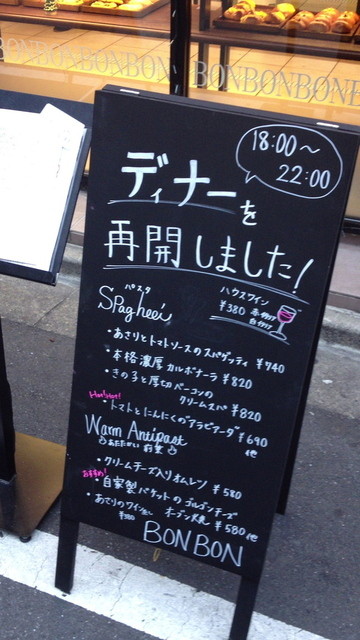 BONBONBON BONBONBONB
18:00〜
22:00
ディナーを
再開しました!
パスタ
Spagheei
ハウスワイン
¥380 赤 白
・あさりとトマトソースのスパゲッティ ¥740
・本格濃厚カルボナーラ ¥820
・きの子と厚切ベーコンの
クリームスパ ¥820
Hot!Hot!
・トマトとにんにくのアラビアータ ¥690
他
Warm Antipast
あたたかい前菜
・クリームチーズ入りオムレツ ¥580
おすすめ!
・自家製バケットのゴルゴンチーズ
オーブン焼 ¥580 他
¥380
BONBON